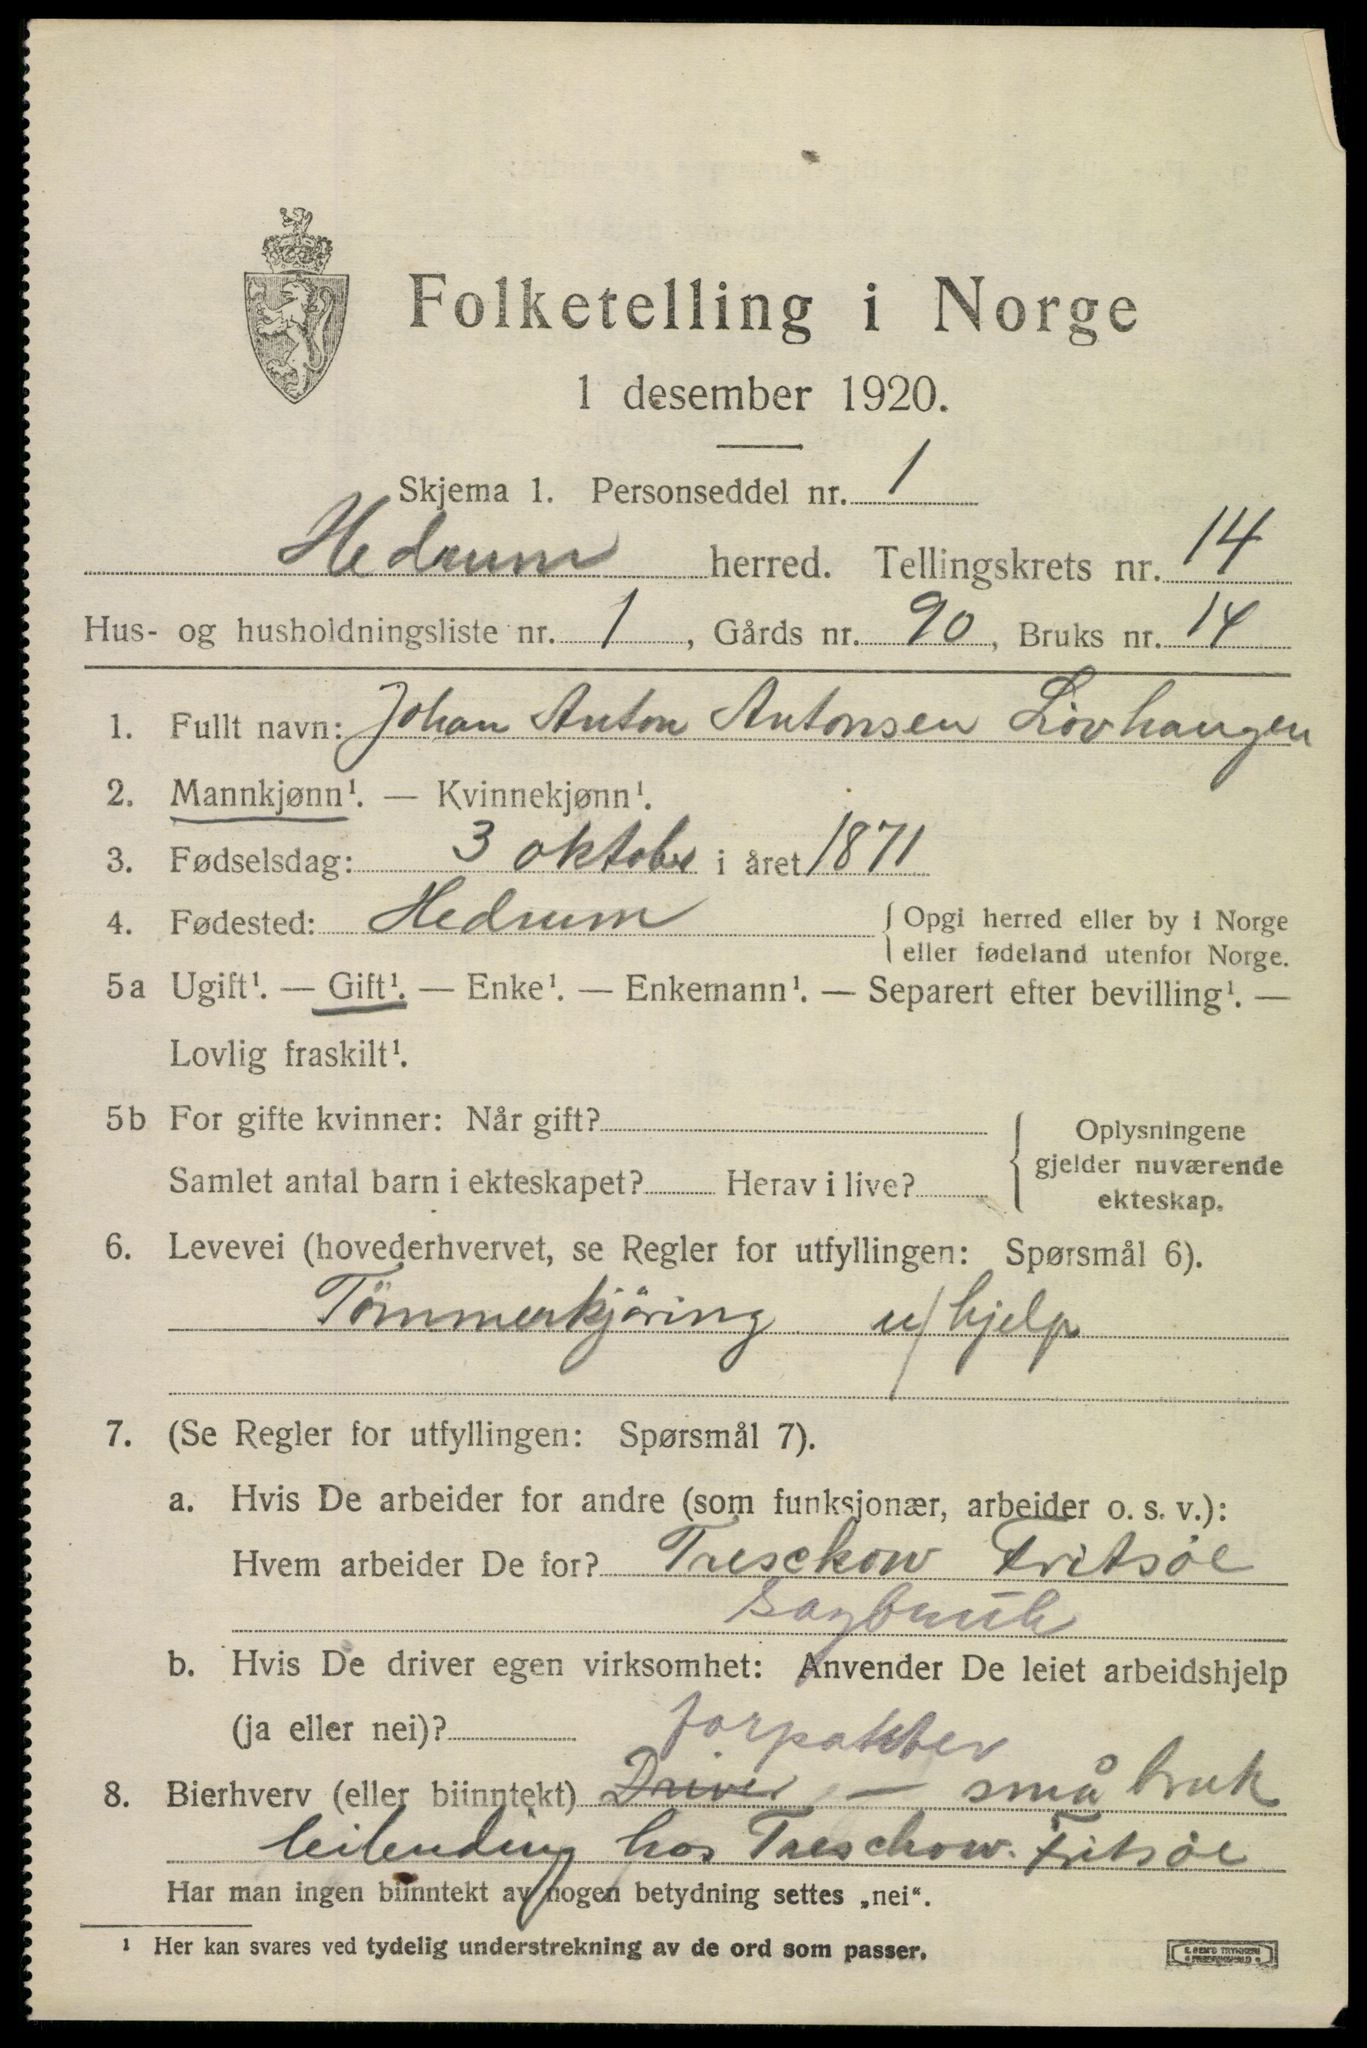 Folketelling i Norge
1 desember 1920.
Skjema 1. Personseddel nr. 1
Hedrum herred. Tellingskrets nr. 14
Hus- og husholdningsliste nr. 1, Gårds nr. 90, Bruks nr. 14
1. Fullt navn: Johan Anton Antonsen Lövhaugen
2. Mannkjønn¹. — Kvinnekjønn¹.
3. Fødselsdag: 3 oktober i året 1871
4. Fødested: Hedrum { Opgi herred eller by i Norge
eller fødeland utenfor Norge.
5a Ugift¹. — Gift¹. — Enke¹. — Enkemann¹. — Separert efter bevilling¹. —
Lovlig fraskilt¹.
5b For gifte kvinner: Når gift? { Oplysningene
gjelder nuværende
Samlet antal barn i ekteskapet? Herav i live?
ekteskap.
6. Levevei (hovederhvervet, se Regler for utfyllingen: Spørsmål 6).
Tömmerkjöring u/hjelp
7. (Se Regler for utfyllingen: Spørsmål 7).
a. Hvis De arbeider for andre (som funksjonær, arbeider o. s. v.):
Hvem arbeider De for? Treschow Fritsøe
Sagbruk
b. Hvis De driver egen virksomhet: Anvender De leiet arbeidshjelp
(ja eller nei)?
forpakter
8. Bierhverv (eller biinntekt) Driver — små bruk
leilending hos Treschow-Fritsøe
Har man ingen biinntekt av nogen betydning settes „nei“.
¹ Her kan svares ved tydelig understrekning av de ord som passer.